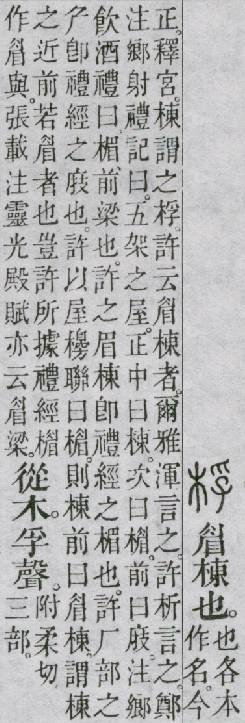 桴睂棟也。
也各本
作名今
正。釋宮。棟謂之桴。許云睂棟者。爾雅渾言之。許析言之。鄭
注鄉射禮記曰。五架之屋。正中曰棟。次曰楣。前曰庪。注鄉
飮酒禮曰楣前梁也。許之眉棟卽禮經之楣也。許厂部之
𠂨卽禮經之庪也。許以屋櫋聯曰楣。則棟前曰睂棟。謂棟
之近前若睂者也。豈許所據禮經楣
作睂與。張載注靈光殿賦亦云睂梁。
從木孚聲。
附柔切
三部。